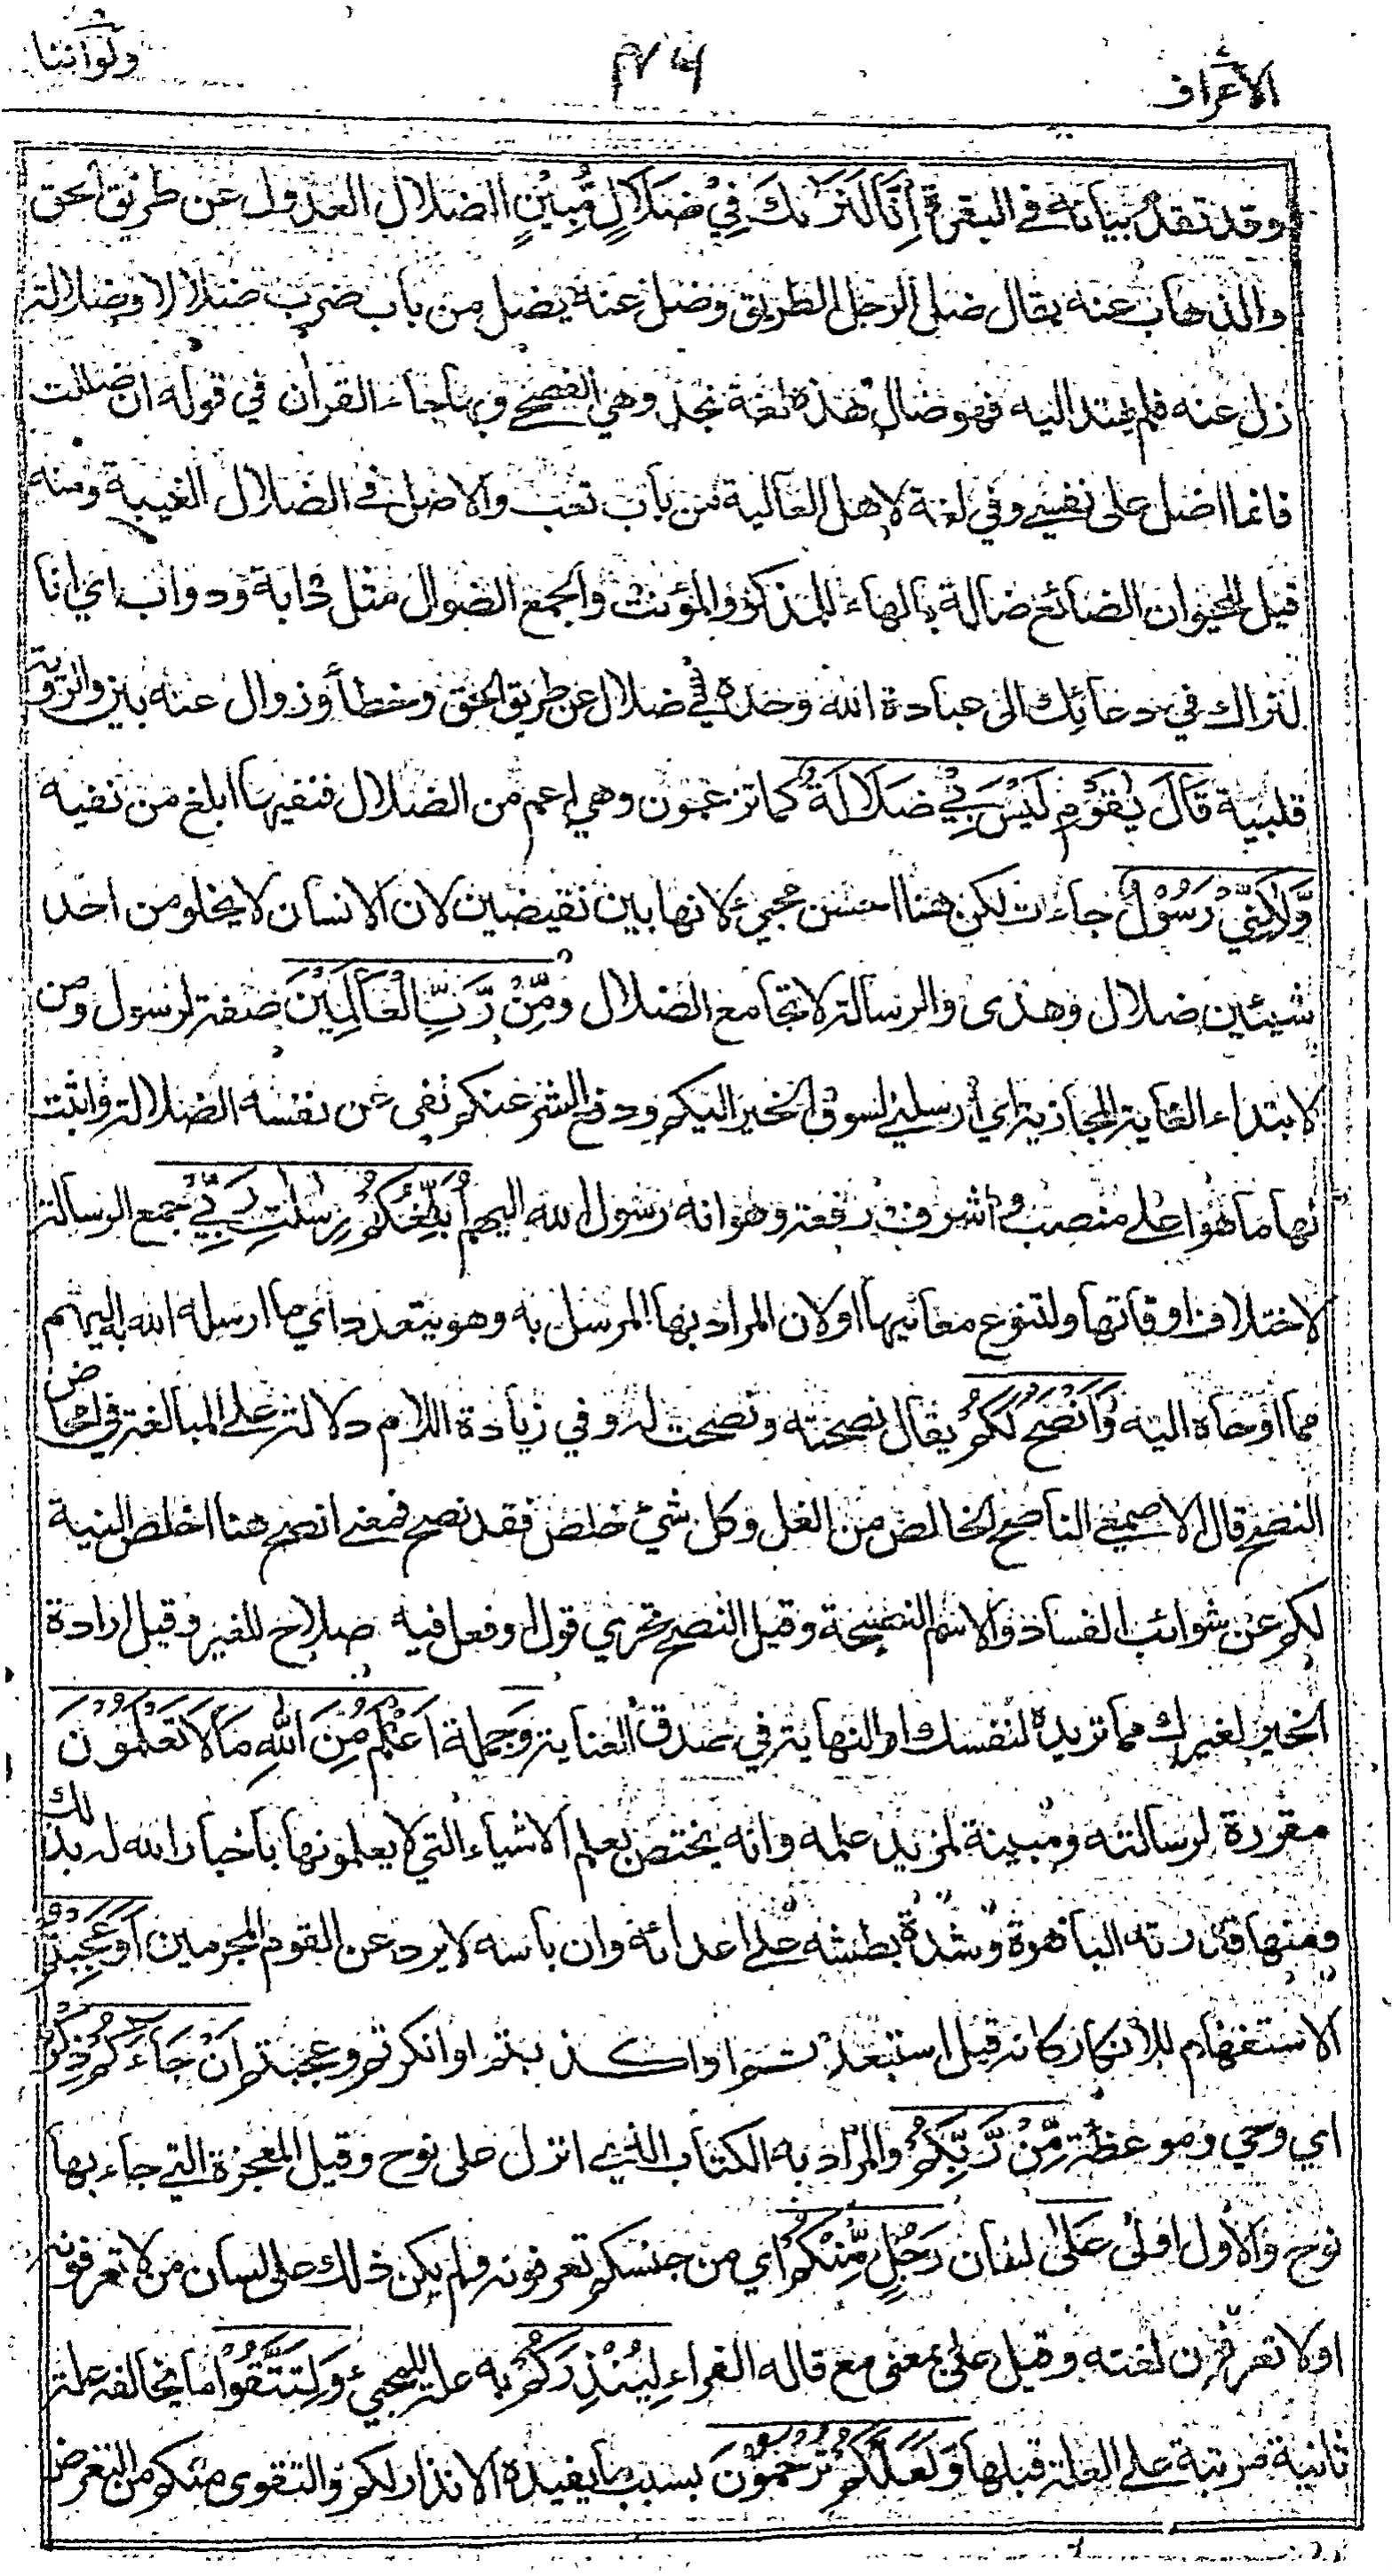 الاعراف
ولواننا
وقد تقدم بيانه في البقرة إِنَّا لَنَرَاكَ فِيْ ضَلَالٍ مُّبِيْنٍ الضلال العدول عن طريق الحق
والذهاب عنه يقال ضل الرجل الطريق وضل عنه يضل من باب ضرب ضلالا وضلالة
زل عنه فلم يهتد اليه فهو ضال هذه لغة نجد وهي الفصحى وبها جاء القران في قوله ان ضللت
فانما اضل على نفسي وفي لغة لاهل العالية من باب تعب والاصل في الضلال الغيبة ومنه
قيل للحيوان الضائع ضالة بالهاء للمذكر والمؤنث والجمع الضوال مثل دابة ودواب اي انا
لنراك في دعائك الى عبادة الله وحده في ضلال عن طريق الحق وخطأ وزوال عنه بين والروية
قلبية قَالَ يٰقَوْمِ لَيْسَ بِيْ ضَلَالَةٌ كما تزعمون وهي اعم من الضلال فنفيها ابلغ من نفيه
وَّلٰكِنِّيْ رَسُوْلٌ جاءت لكن هنا احسن مجيئ لانها بين نقيضين لان الانسان لا يخلو من احد
شيئين ضلال وهدى والرسالة لا تجامع الضلال ومِّنْ رَّبِّ الْعَالَمِيْنَ صفة لرسول ومن
لابتداء الغاية المجازية اي ارسلني لسوق الخير اليكم ودفع الشر عنكم نفى عن نفسه الضلالة واثبت
لها ما هو اعلى منصب واشرف رفعة وهو انه رسول الله اليهم أُبَلِّغُكُمْ رِسٰلٰتِ رَبِّيْ جمع الرسالة
لاختلاف اوقاتها ولتنوع معانيها اولان المراد بها المرسل به وهو يتعدد اي ما ارسله الله به اليهم
مما اوحاه اليه وَأَنْصَحُ لَكُمْ يقال نصحته ونصحت له وفي زيادة اللام دلالة على المبالغة في امحاض
النصح قال الاصمعي الناصح الخالص من الغل وكل شيئ خلص فقد نصح فمعنى انصح هنا اخلص النية
لكم عن شوائب الفساد والاسم النصيحة وقيل النصح تحري قول او فعل فيه صلاح للغير وقيل ارادة
الخير لغيرك مما تريده لنفسك او النهاية في صدق العناية وجملة أَعْلَمُ مِنَ اللهِ مَا لَا تَعْلَمُوْنَ
مقررة لرسالته ومبينة لمزيد علمه وانه يختص بعلم الاشياء التي لا يعلمونها باخبار الله له بذلك
فمنها قدرته الباهرة وشدة بطشه على اعدائه وان باسه لا يرد عن القوم المجرمين أَوَعَجِبْتُمْ
الاستفهام للانكار كانه قيل استبعدتم او اكذبتم او انكرتم وعجبتم أَنْ جَآءَكُمْ ذِكْرٌ
اي وحي وموعظة مِّنْ رَّبِّكُمْ والمراد به الكتاب الذي انزل على نوح وقيل المعجزة التي جاء بها
نوح والاول اولى عَلٰى لسان رَجُلٍ مِّنْكُمْ اي من جنسكم تعرفونه ولم يكن ذلك على لسان من لا تعرفونه
اولا تعرفون لغته وقيل على بمعنى مع قاله الفراء لِيُنْذِرَكُمْ به علة للمجيئ وَلِتَتَّقُوْا ما يخالفه علة
ثانية مرتبة على العلة قبلها وَلَعَلَّكُمْ تُرْحَمُوْنَ بسبب ما يفيده الانذار لكم والتقوى منكم من التعرض